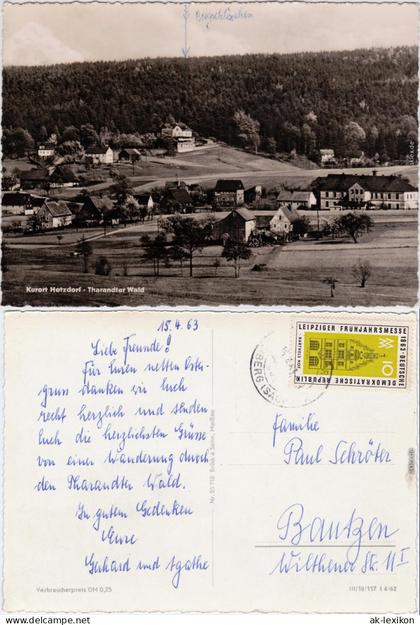 Bergschlößchen
Kurort Hetzdorf - Tharandter Wald
15.4.63
Lieb Freunde!
Für Euren netten Oster-
gruss danken wir Euch
recht herzlich und senden
Euch die herzlichsten Grüsse
von einer Wanderung durch
den Tharandter Wald.
In gutem Gedenken
Eure
Gerhard und Agathe
Verbraucherpreis DM 0,25
Brück & Sohn, Meißen
LEIPZIGER FRÜHJAHRSMESSE 1963
DEUTSCHE DEMOKRATISCHE REPUBLIK
BARTHELS HOF
10
BERG (SACHS
Familie
Paul Schröter
Bautzen
Wilthener Str. 11 I
III/18/117 I 4/62
ak-lexikon.com